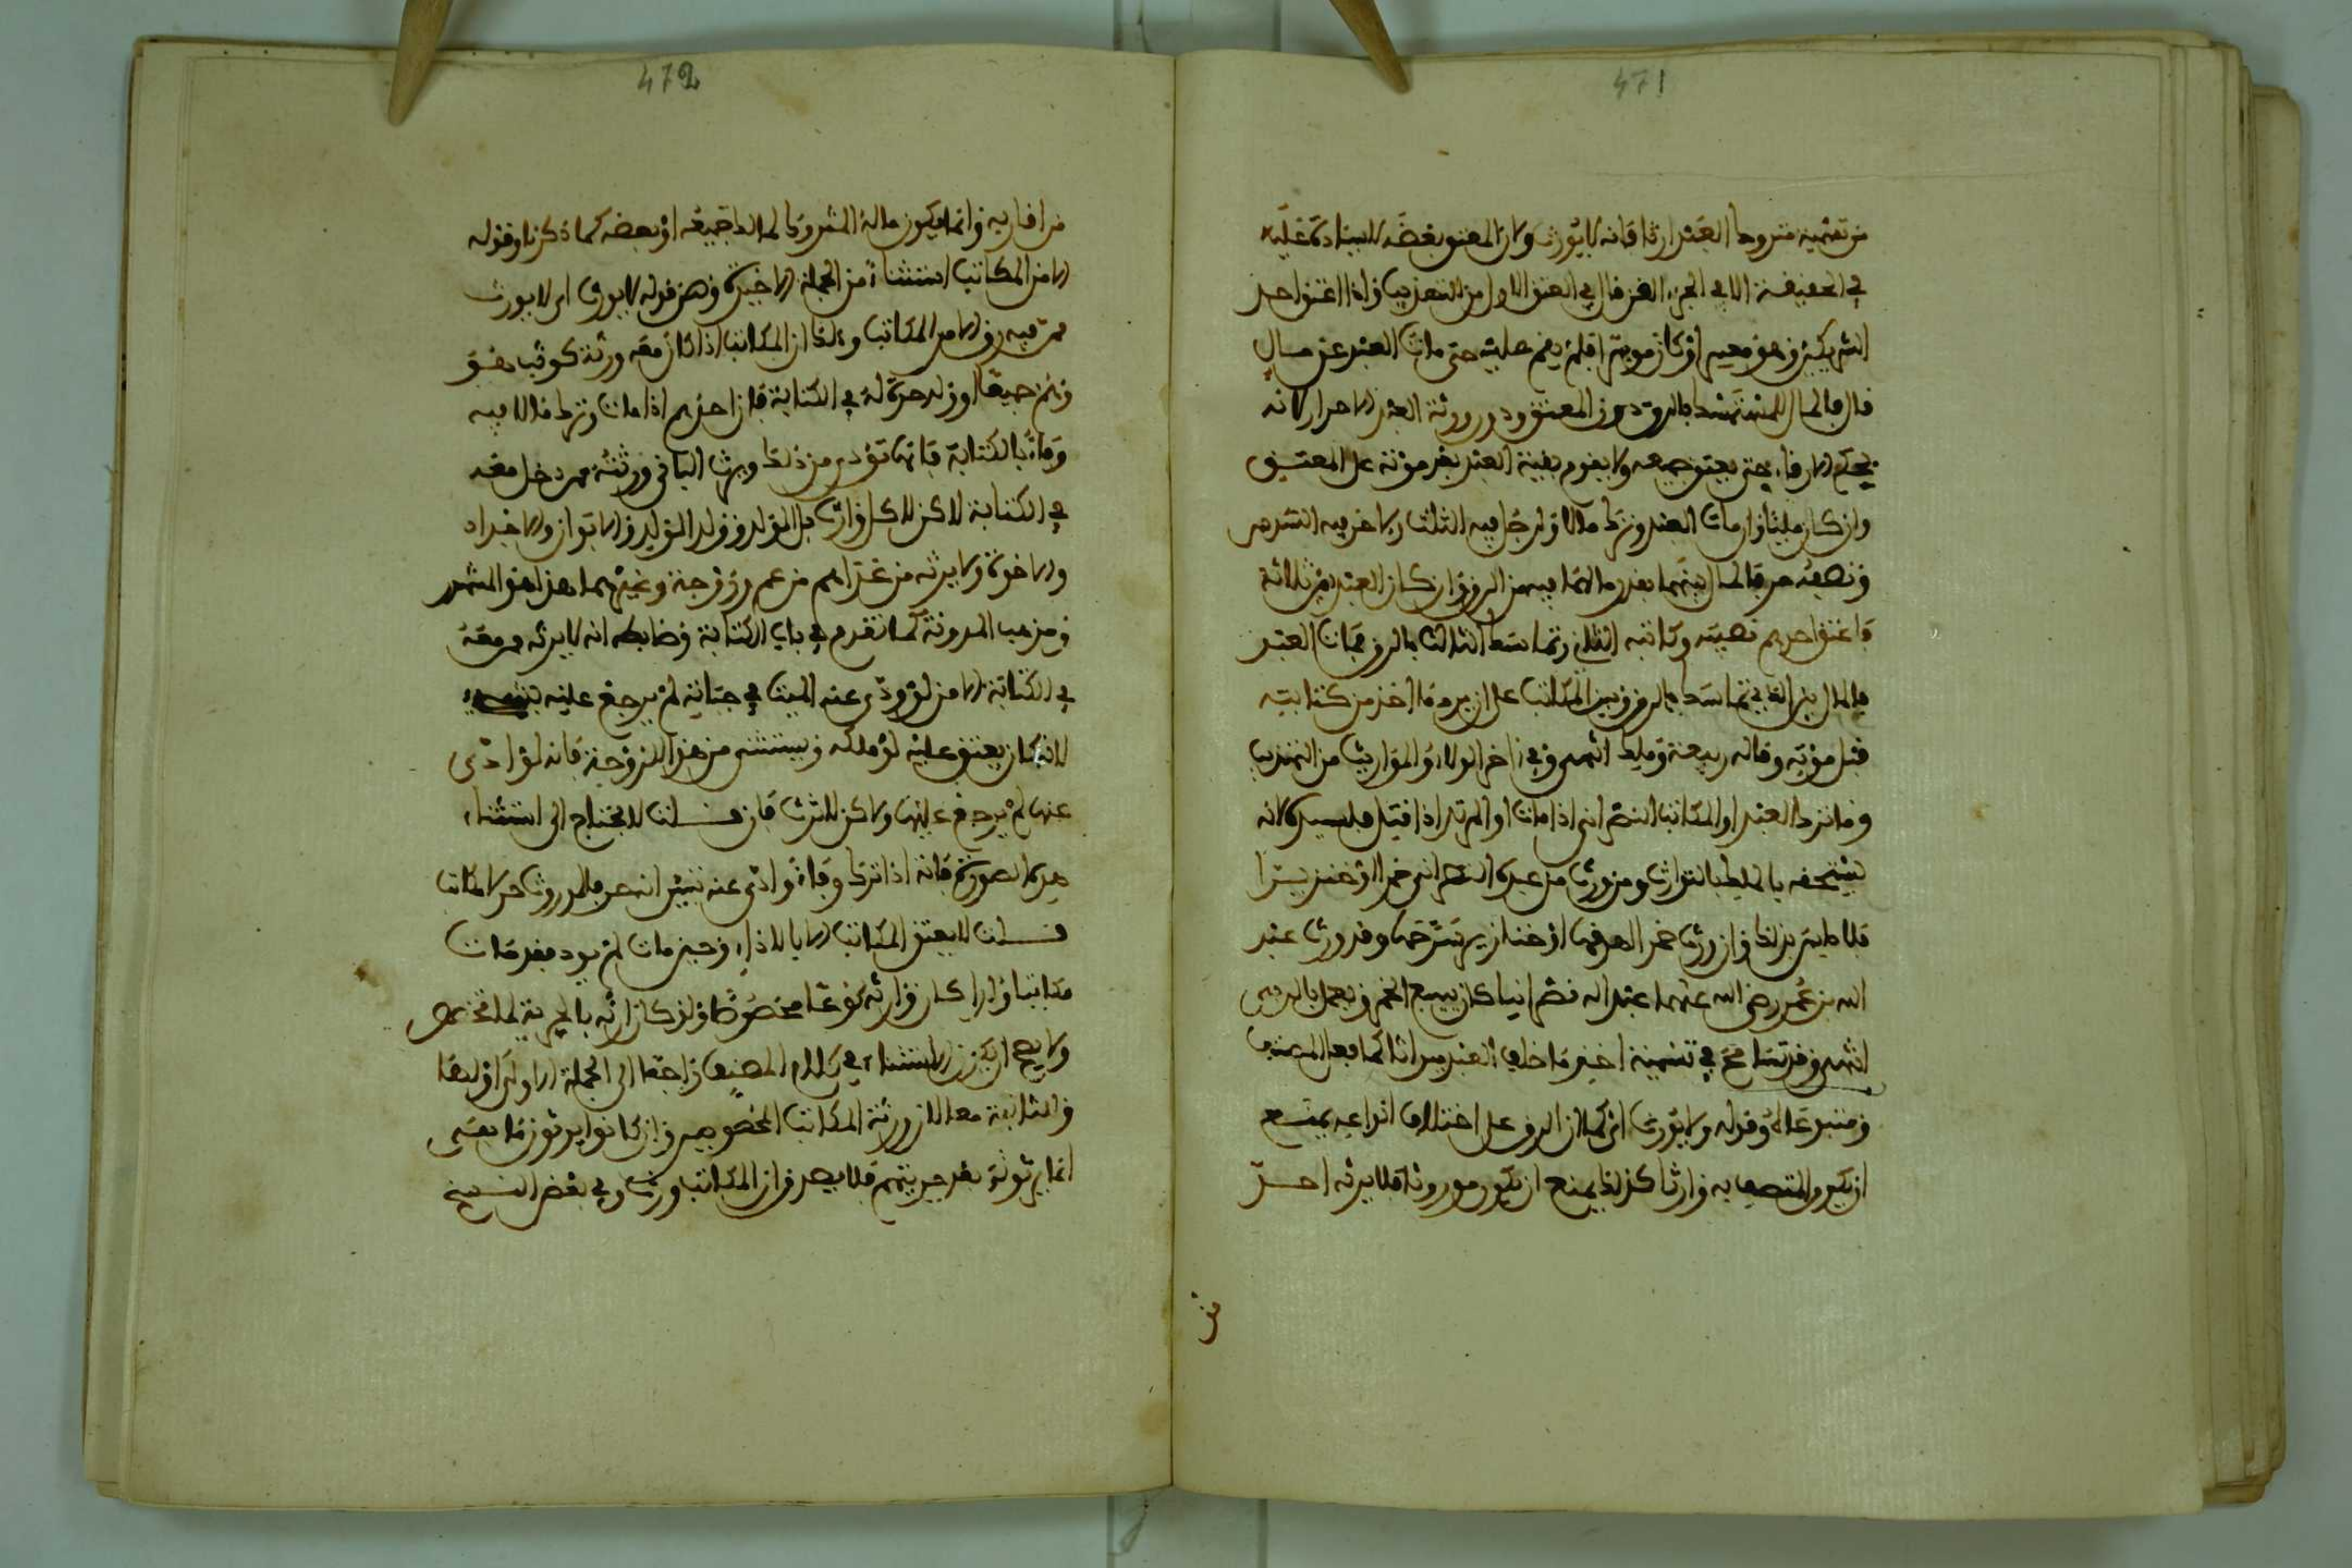 471
من تسمية متروك العبد ارثا فانه لا يورث ولا المعتق بعضه للسيادة عليه
في الحقيقة الا في الجزء الذي قال في العتق الاول من التهذيب واذا اعتق احد
الشريكين وهو معسر او كان موسرا فلم يقم عليه حتى مات العبد عن مال
قال فالمال للمتمسك بالرق دون المعتق ودون ورثة العبد الاحرار لانه
بحكم الارقاء حتى يعتق جميعه ولا يقوم بقية العبد بعد موته على المعتق
وان كان مليا وان مات العبد وترك مالا ولرجل فيه الثلث ولاخر فيه السدس
ونصفه حر فالمال بينهما بقدر ما لهما فيه من الرق وان كان العبد بين ثلاثة
فاعتق احدهم نصيبه وكاتبه الثاني وتماسك الثالث بالرق فمات العبد
فالمال بين الذي تماسك بالرق وبين المكاتب على ان يرد ما اخذ من كتابته
قبل موته وقاله ربيعة ومالك انتهى وفي اخر الولاء والمواريث من التهذيب
وما ترك العبد او المكاتب النصراني اذا مات او المرتد اذا قتل فلسيده لانه
يستحقه بالملك لا بالتوارث ومن ورث من عبده النصراني خمرا او خنزيرا
فلا باس بذلك وان ورث خمرا اهرقها او خنازير سرحها وقد ورث عبد
الله بن عمر رضي الله عنهما عبدا له نصرانيا كان يبيع الخمر ويعمل بالربى
انتهى وقد تسامح في تسمية اخذ ما خلف العبد ميراثا كما فعل المصنف
ومتبوعاه وقوله ولا يورث اي كما ان الرق على اختلاف انواعه يمنع
ان يكون المتصف به وارثا كذلك يمنع ان يكون موروثا فلا يرثه احد
من
472
من اقاربه وانما يكون ماله المتروك لمالكه جميعه او بعضه كما ذكرنا وقوله
الا من المكاتب استثناء من الجملة الاخيرة وهي قوله لا يورث اي لا يورث
من فيه رق الا من المكاتب وذلك ان المكاتب اذا كان معه ورثة كوتب هو
وهم جميعا او ولد حدث له في الكتابة فان احدهم اذا مات وترك مالا فيه
وفاء بالكتابة فانها تؤدى من ذلك ويرث الباقي ورثته ممن دخل معه
في الكتابة لاكن لا كل وارث بل الولد وولد الولد والابوان والاجداد
والاخوة ولا يرثه من عداهم من عم وزوجة وغيرهما هذا هو المشهور
ومذهب المدونة كما تقدم في باب الكتابة وضابطه انه لا يرثه ممن معه
في الكتابة الا من لو ودى عنه الميت في حياته لم يرجع عليه بشيء
لانه كان يعتق عليه لو ملكه ويستثنى من هذا الزوجة فانه لو ادى
عنها لم يرجع عليها ولاكن لا ترث فان قلت لا يحتاج الى استثناء
هذه الصورة فانه اذا ترك وفاء وادى عنه تبين انه حر فالموروث حر لا مكاتب
قلت لا يعتق المكاتب الا بالاداء وحين مات لم يود فقد مات
مكاتبا ولذا كان وارثه نوعا مخصوصا ولو كان ارثه بالحرية لما اختص
ولا يصح ان يكون الاستثناء في كلام المصنف راجعا الى الجملة الاولى او لها
والثانية معا لان ورثة المكاتب المخصوصين وان كانوا يرثون ما بقي
انما يرثونه بعد حريتهم فلا يصدق ان المكاتب ورث وفي بعض النسخ